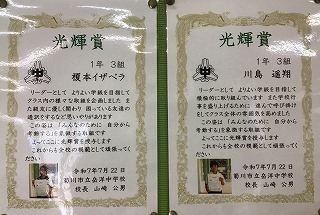 光輝賞
1年 3組
榎本イザベラ
リーダーとして よりよい学級を目指して
クラス内の様々な取組を企画しました ま
た級友に優しく関わり 困っている友達の
通訳をするなど思いやりがあります
この姿は「みんなのために 自分から
考動する」を象徴する取組です
よってここに光輝賞を授与します
これからも全校の規範として頑張ってく
ださい
令和7年7月22日
菊川市立岳洋中学校
校長 山崎 公男
光輝賞
1年 3組
川島 遥翔
リーダーとして よりよい学級を目指して
積極的に取り組んでいます また学校行
事を盛り上げるために 進んで呼び掛け
をしてクラス全体の雰囲気を高めました
この姿は「みんなのために 自分から
考動する」を象徴する取組です
よってここに光輝賞を授与します
これからも全校の規範として頑張ってく
ださい
令和7年7月22日
菊川市立岳洋中学校
校長 山崎 公男